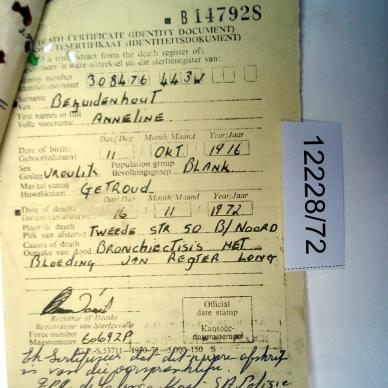 B14792S
DEATH CERTIFICATE (IDENTITY DOCUMENT)
SERTIFIKAAT (IDENTITEITSDOKUMENT)
a true extract from the death register of:
uittreksel uit die sterfteregister van:
Identity number
308476 443W
Surname
Van
Bezuidenhout
First names in full
Volle voorname
ANNELINE
Day/Dag Month/Maand Year/Jaar
Date of birth:
Geboortedatum:
11 OKT 1916
Sex
Geslag
VROULIK
Population group
Bevolkingsgroep
BLANK
Marital status
Huwelikstaat
GETROUD
Day/Dag Month/Maand Year/Jaar
Date of death:
Datum van afsterwe:
16 11 1972
Place of death
Plek van afsterwe
TWEEDE STR 50 B/NOORD
Causes of death
Oorsake van dood
BRONCHIECTISIS MET
BLOEDING VAN REGTER LONG
Registrar of Death
Registrateur van Sterfgevalle
Force number
Magsnommer
60692P
Official
date stamp
Kantoor-
datumstempel
Ek sertifiseer dat dit 'n ware afskrif
is van die oorspronklike
S.A. Polisie
12228/72